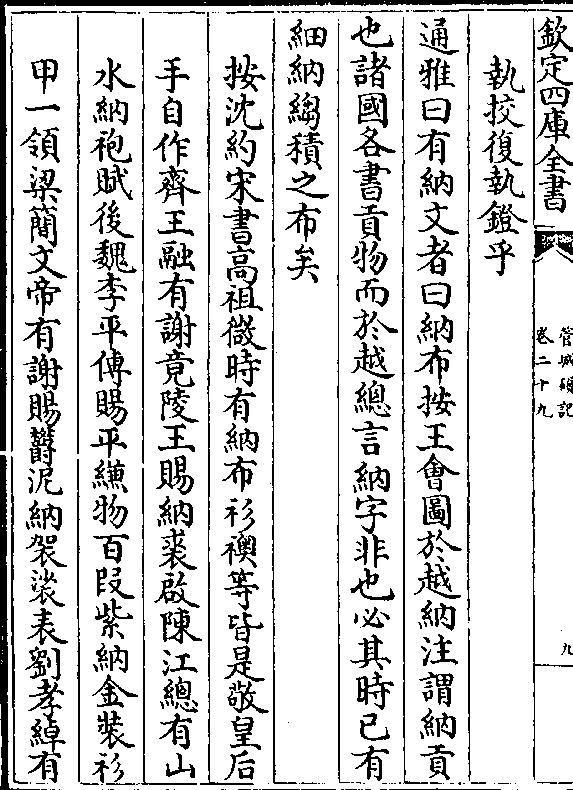 欽定四庫全書
管城碩記
卷二十九
九
執挍復執鐙乎
通雅曰有納文者曰納布按王會圖於越納注謂納貢
也諸國各書貢物而於越總言納字非也必其時已有
細納縐積之布矣
按沈約宋書高祖微時有納布衫襖等皆是敬皇后
手自作齊王融有謝竟陵王賜納裘啟陳江總有山
水納袍賦後魏李平傅賜平縑物百段紫納金装衫
甲一領梁簡文帝有謝賜欝泥納袈裟表劉孝綽有